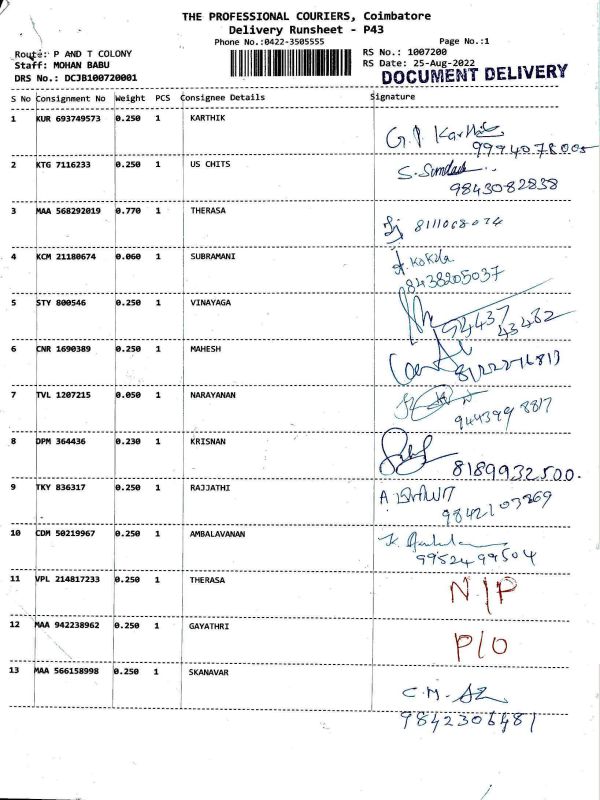 THE PROFESSIONAL COURIERS, Coimbatore
Delivery Runsheet - P43
Phone No.:0422-3505555 Page No.:1
Route: P AND T COLONY RS No.: 1007200
Staff: MOHAN BABU RS Date: 25-Aug-2022
DRS No.: DCJB100720001 DOCUMENT DELIVERY
S No Consignment No Weight PCS Consignee Details Signature
1 KUR 693749573 0.250 1 KARTHIK
G.P Karthik
9994078005
2 KTG 7116233 0.250 1 US CHITS
S.
9843082838
3 MAA 568292019 0.770 1 THERASA
8111068074
4 KCM 21180674 0.060 1 SUBRAMANI
Kokila
8438205037
5 STY 800546 0.250 1 VINAYAGA
94437 43462
6 CNR 1690389 0.250 1 MAHESH
7 TVL 1207215 0.050 1 NARAYANAN
944399 8817
8 DPM 364436 0.230 1 KRISNAN
8189932500.
9 TKY 836317 0.250 1 RAJJATHI
A
9842103269
10 CDM 50219967 0.250 1 AMBALAVANAN
K.
99524 99504
11 VPL 214817233 0.250 1 THERASA
N/P
12 MAA 942238962 0.250 1 GAYATHRI
P/O
13 MAA 566158998 0.250 1 SKANAVAR
C.M.
9842306481